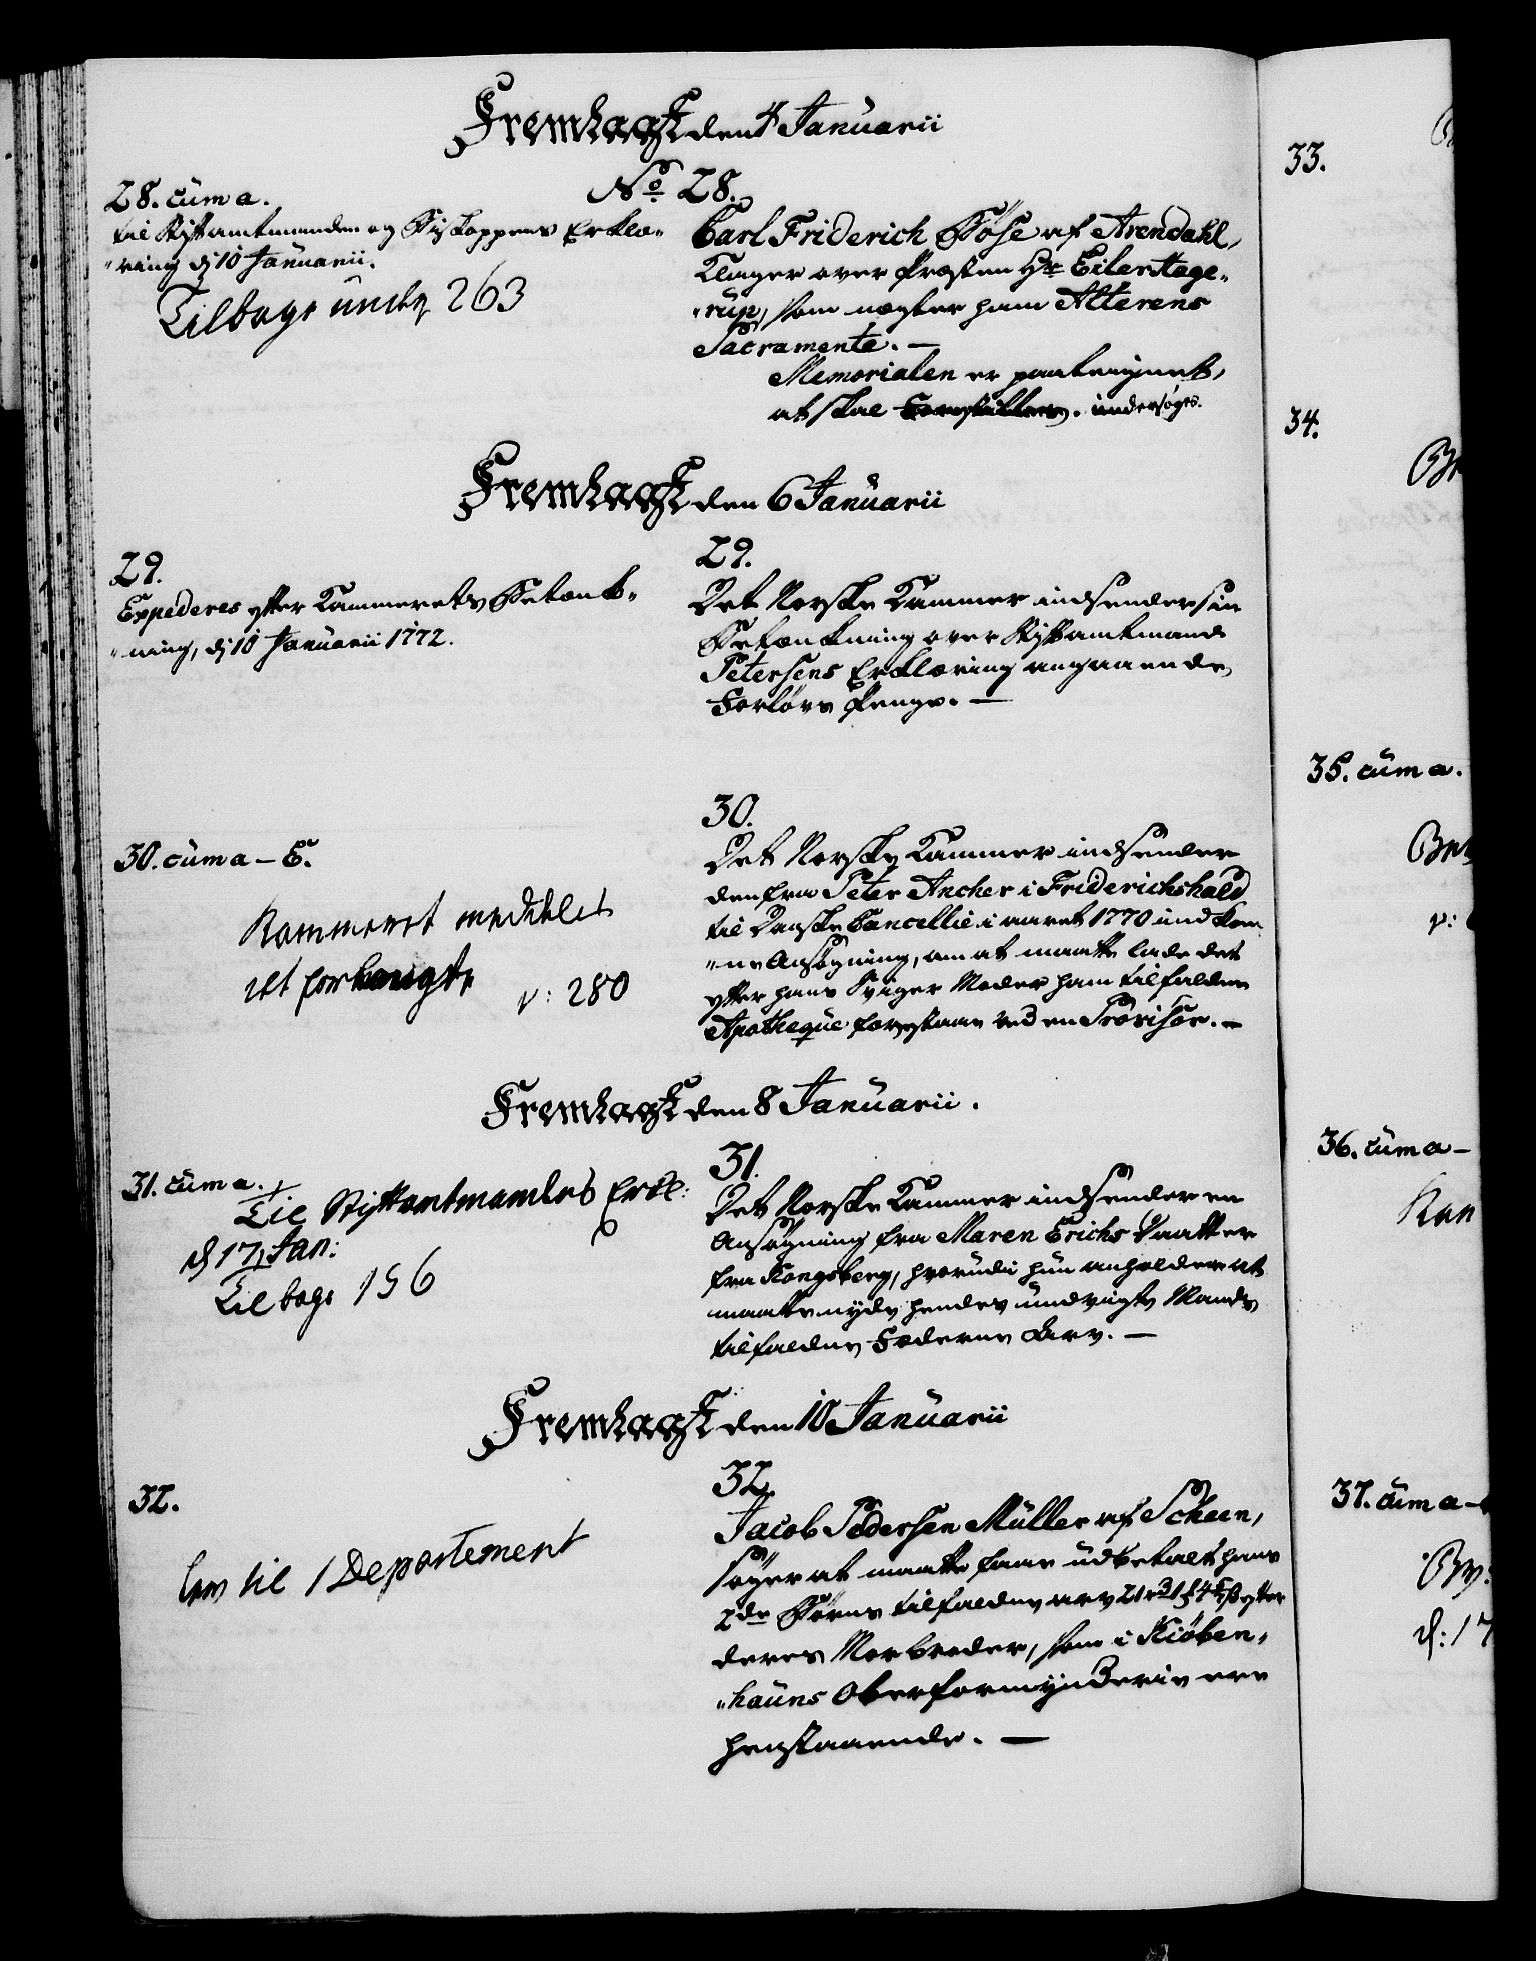 Fremlagt den 4 Januarii
28. cum a.
til Stiftamtmanden og Biskoppens Erklæ„
„ring d. 10 Januarii.
Tilbage under 263
No. 28.
Carl Friderich Böse af Arendahl,
Klager over Præsten Hr. Eiler Hage„
„rup, som nægter ham Alterens
Sacramente. —
Memorialen er paategnet,
at skal Forestilles. undersøges.
Fremlagt den 6 Januarii
29.
Expederes efter Kammerets Betænk„
„ning, d. 10 Januarii 1772.
29.
Det Norske Kammer indsender sin
Betænkning over Stiftamtmand
Petersens Erklæring angaaende
Forlövs Penge. —
30. cum a – E.
Kammeret meddelet
det forlangte
v: 280
30.
Det Norske Kammer indsender
den fra Peter Ancher i Friderichshald
til Danske Cancellie i aaret 1770 indkom„
„ne Ansøgning, om at maatte lade det
efter hans Sviger Moder ham tilfaldne
Apotheque forestaae ved en Provisor. –
Fremlagt den 8 Januarii.
31. cum a.
Til Stiftamtmandens Erkl:
d 17 Jan:
Tilbage 156
31.
Det Norske Kammer indsender en
Ansøgning fra Maren Erichs Daatter
fra Kongsberg, hvorudi hun anholder at
maatte nyde hendes undvigte Mands
tilfaldne Fæderne Arv. —
Fremlagt den 10 Januarii
32.
lev til 1 Departement
32.
Jacob Pedersen Müller af Scheen,
søger at maatte faae udbetalt hans
2de Børns tilfaldne arv 21 r 3 1 ß efter
deres Morbroder, som i Kiöben„
„hauns Oberformynderie ere
henstaaende. —
33.
34.
35. cum a.
v:
36. cum a –
Kan
37. cum a –
d: 17